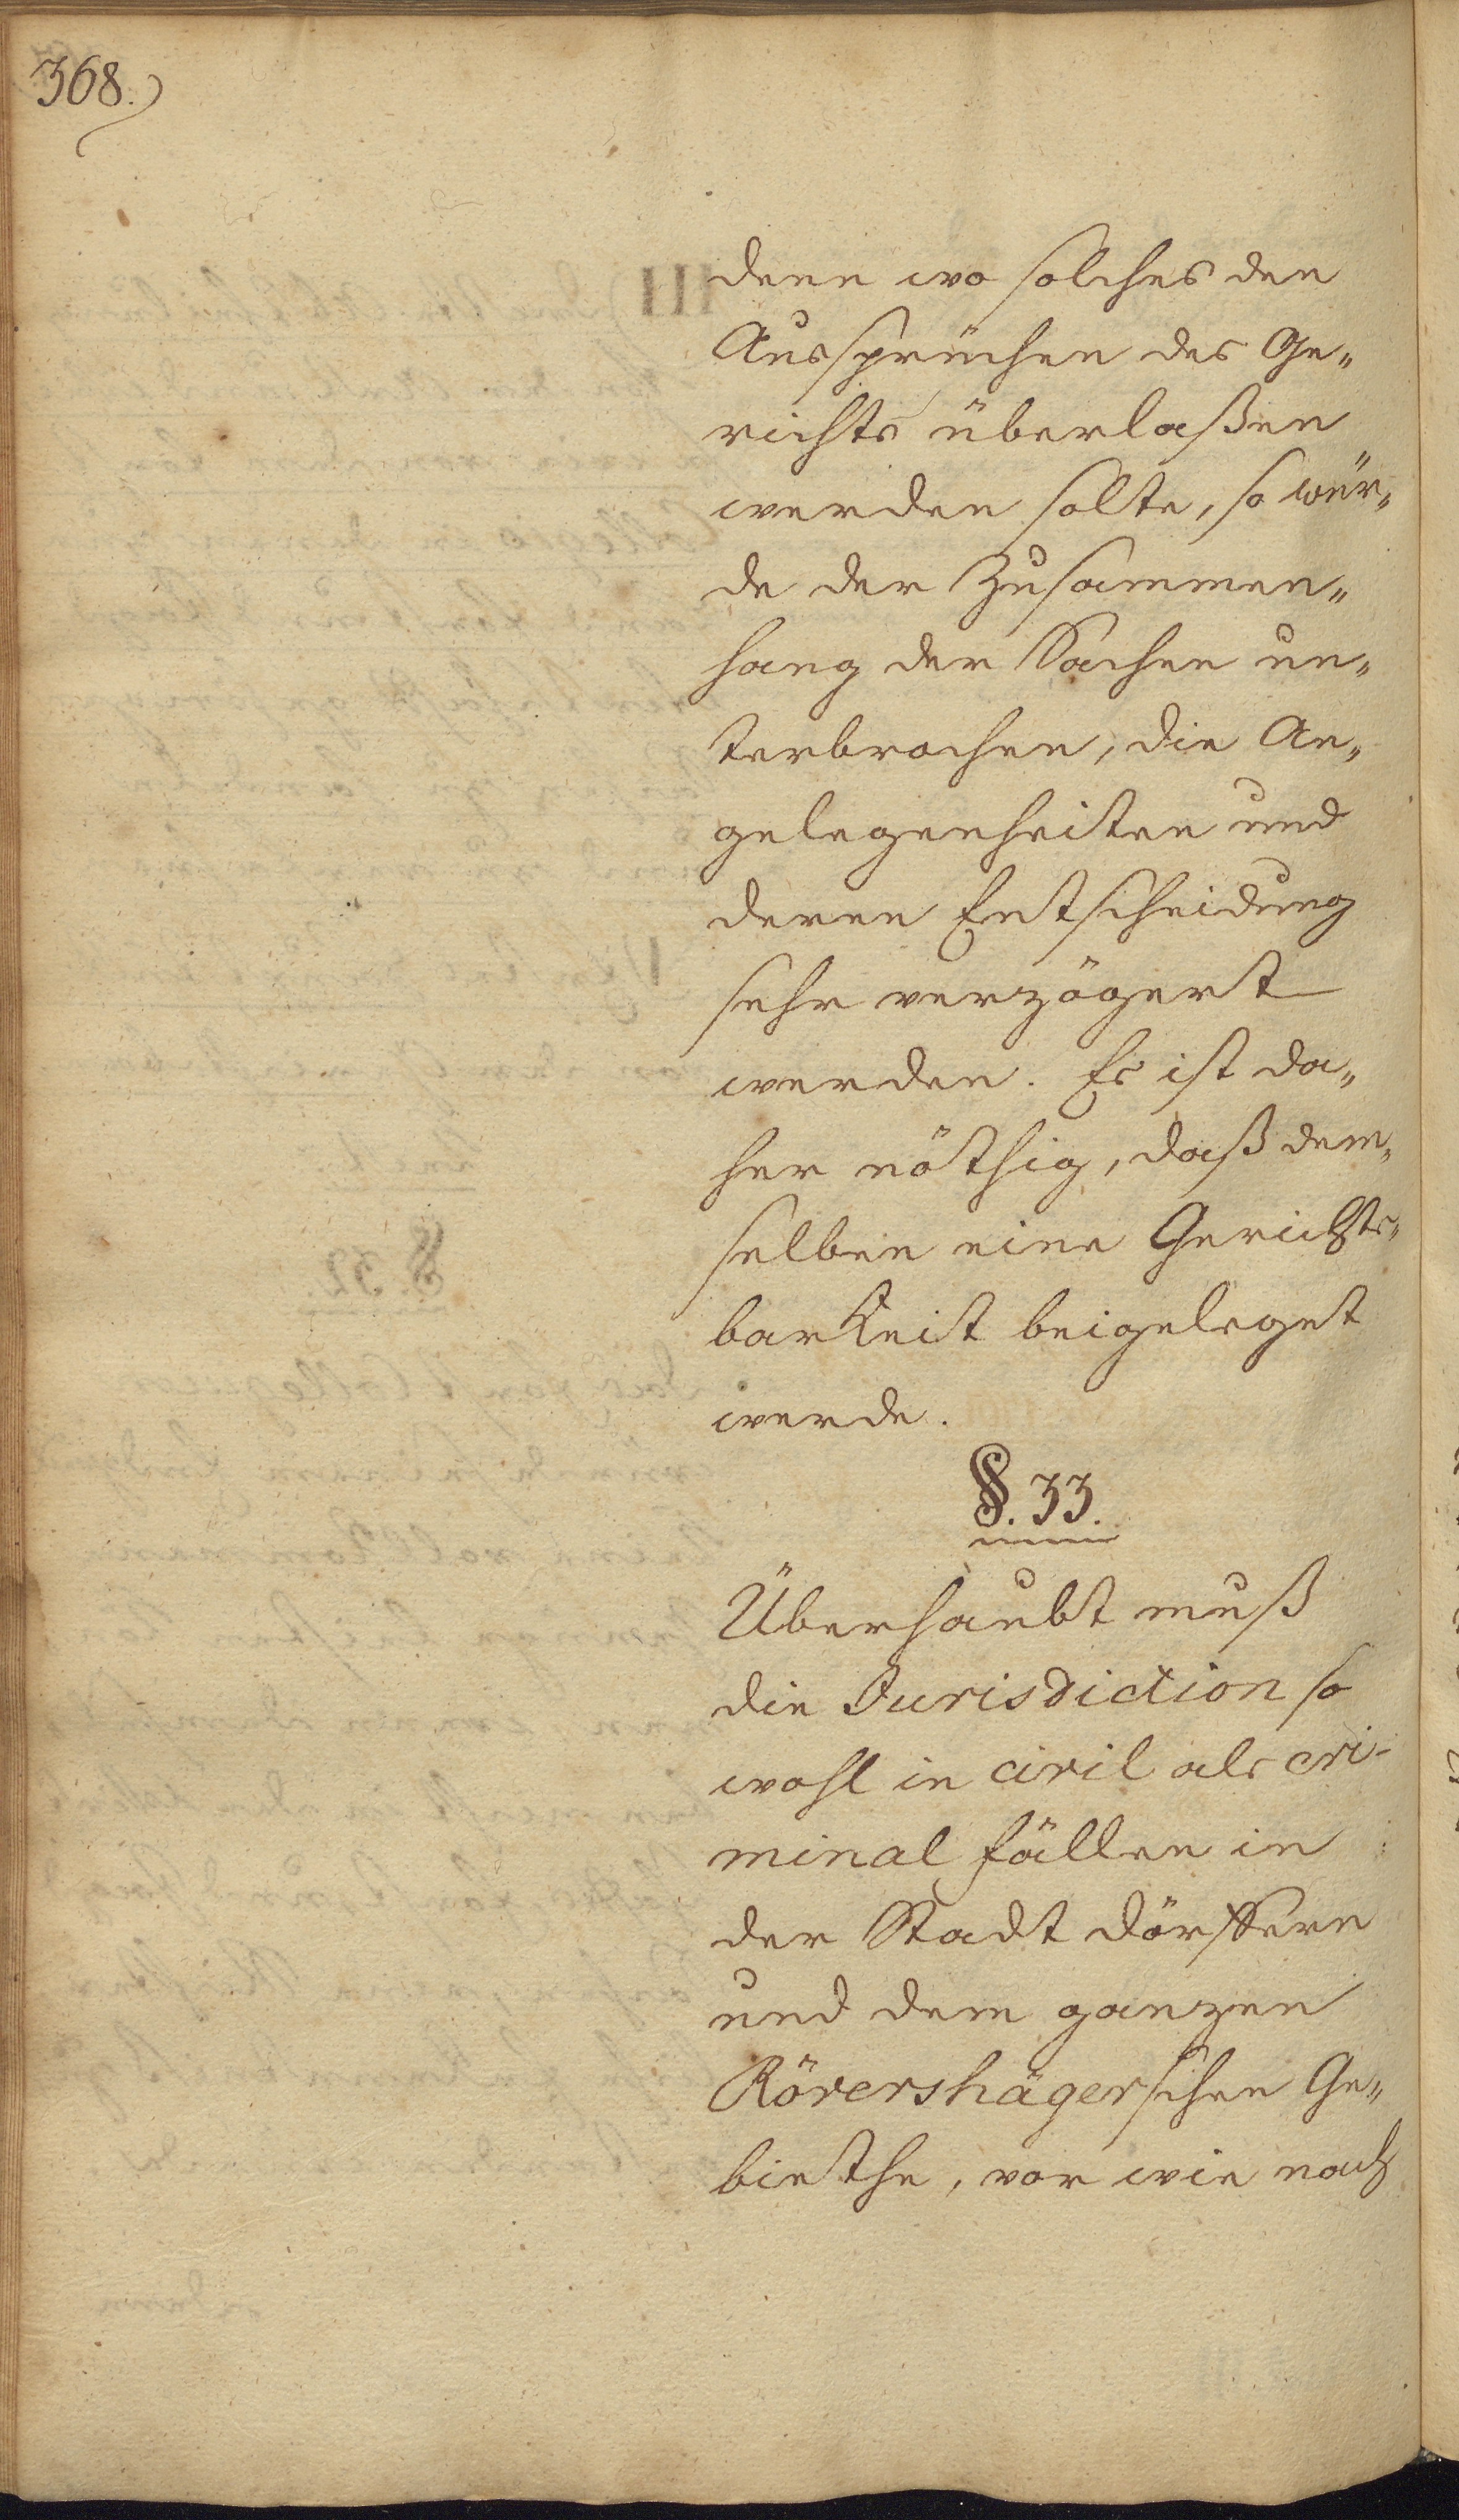 368.)
denn wo solches den
Aussprüchen des Ge„
richts überlaßen
werden solte, so wür„
de der Zusammen„
hang der Sachen un„
terbrochen, die An„
gelegenheiten und
deren Entscheidung
sehr verzögert
werden. Es ist da„
her nöthig, daß dem„
selben eine Gerichts„
barkeit beigeleget
werde.
§. 33.
Überhaubt muß
die Jurisdiction so
wohl in civil als cri-
minal fällen in
der Stadt Dörffern
und dem ganzen
Rövershäger schen Ge„
biethe, vor wie nach